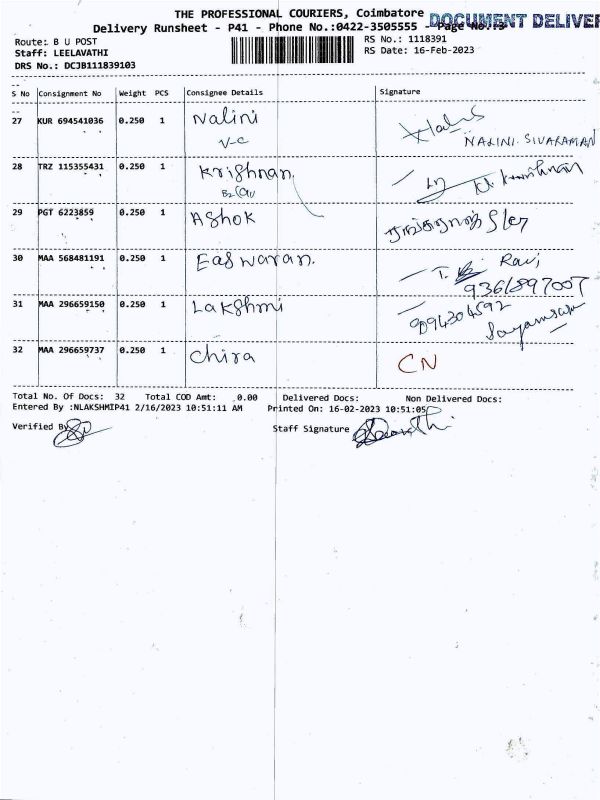 THE PROFESSIONAL COURIERS, Coimbatore
DOCUMENT DELIVER
Delivery Runsheet - P41 - Phone No.:0422-3505555 - Page No.:3
Route: B U POST
RS No.: 1118391
Staff: LEELAVATHI
RS Date: 16-Feb-2023
DRS No.: DCJB111839103
S No Consignment No Weight PCS Consignee Details Signature
27 KUR 694541036 0.250 1 Nalini
V-C
NALINI. SIVARAMAN
28 TRZ 115355431 0.250 1 Krishnan
29 PGT 6223859 0.250 1 Ashok
30 MAA 568481191 0.250 1 Easwaran. T. Ravi
9361897007
31 MAA 296659150 0.250 1 Lakshmi
8094304592
32 MAA 296659737 0.250 1 Chira CN
Total No. Of Docs: 32 Total COD Amt: 0.00 Delivered Docs: Non Delivered Docs:
Entered By :NLAKSHMIP41 2/16/2023 10:51:11 AM Printed On: 16-02-2023 10:51:05
Verified By
Staff Signature